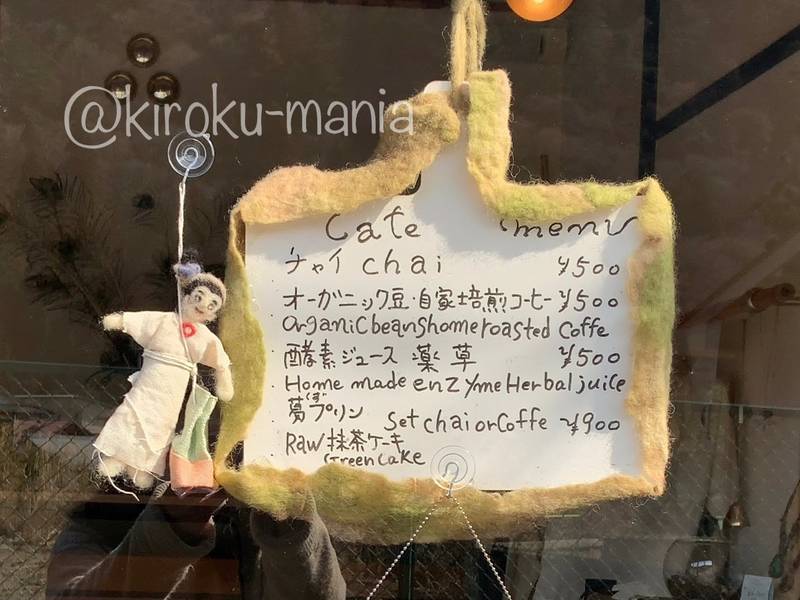 @kiroku-mania
Cafe menu
チャイ chai ¥500
オーガニック豆・自家焙煎コーヒー ¥500
organic beans home roasted coffe
酵素ジュース 薬草 ¥500
Home made enzyme Herbal juice
くず
葛プリン Set chai or Coffe ¥900
RAW 抹茶ケーキ
Green cake